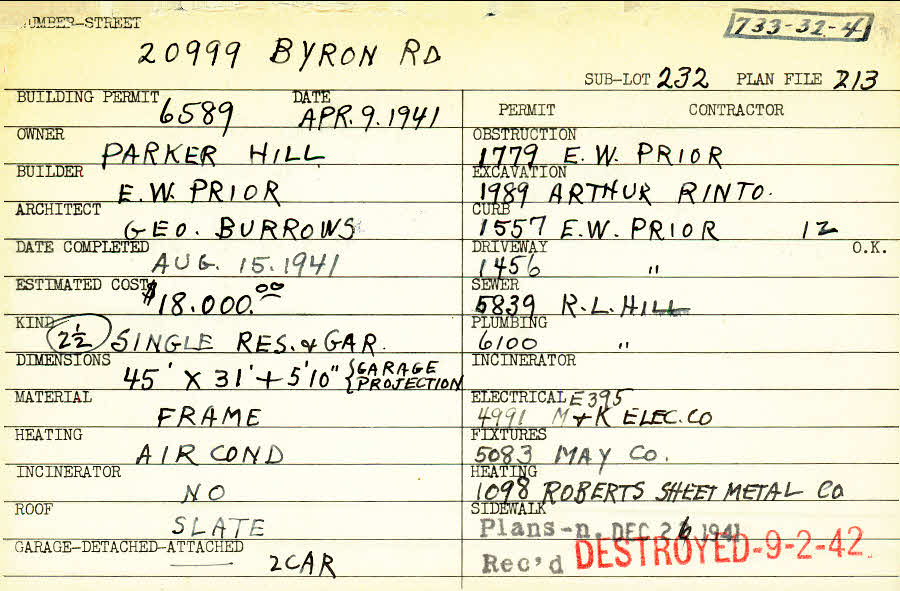 NUMBER-STREET
733-32-4
20999 BYRON RD
SUB-LOT 232 PLAN FILE 213
BUILDING PERMIT 6589 DATE APR. 9. 1941
OWNER PARKER HILL
BUILDER E.W. PRIOR
ARCHITECT GEO. BURROWS
DATE COMPLETED AUG. 15. 1941
ESTIMATED COST $18.000.00
KIND 2½ SINGLE RES. & GAR.
DIMENSIONS 45' X 31' + 5'10" { GARAGE PROJECTION
MATERIAL FRAME
HEATING AIR COND
INCINERATOR NO
ROOF SLATE
GARAGE-DETACHED-ATTACHED 2 CAR
PERMIT CONTRACTOR
OBSTRUCTION 1779 E.W. PRIOR
EXCAVATION 1989 ARTHUR RINTO.
CURB 1557 E.W. PRIOR 12
DRIVEWAY 1456 " O.K.
SEWER 5839 R.L. HILL
PLUMBING 6100 "
INCINERATOR
ELECTRICAL E395
4991 M & K ELEC. CO
FIXTURES 5083 MAY CO.
HEATING 1098 ROBERTS SHEET METAL CO
SIDEWALK
Plans-n. DEC 26 1941
Rec'd DESTROYED-9-2-42